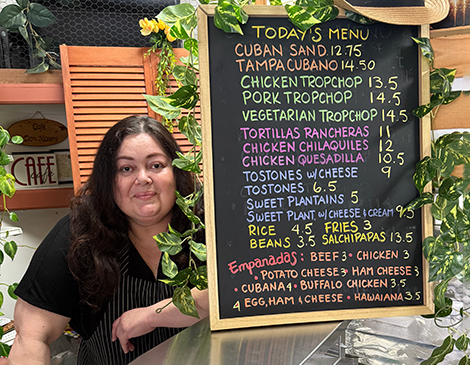 TODAY'S MENU
CUBAN SAND 12.75
TAMPA CUBANO 14.50
CHICKEN TROPCHOP 13.5
PORK TROPCHOP 14.5
VEGETARIAN TROPCHOP 14.5
TORTILLAS RANCHERAS 11
CHICKEN CHILAQUILES 12
CHICKEN QUESADILLA 10.5
TOSTONES W/CHEESE 9
TOSTONES 6.5
SWEET PLANTAINS 5
SWEET PLANT. W/CHEESE & CREAM 9.5
RICE 4.5 FRIES 3
BEANS 3.5 SALCHIPAPAS 13.5
Empanadas: BEEF 3 • CHICKEN 3
• POTATO CHEESE 3 • HAM CHEESE 3
• CUBANA 4 • BUFFALO CHICKEN 3.5
4 EGG, HAM & CHEESE • HAWAIIANA 3.5
CAFE